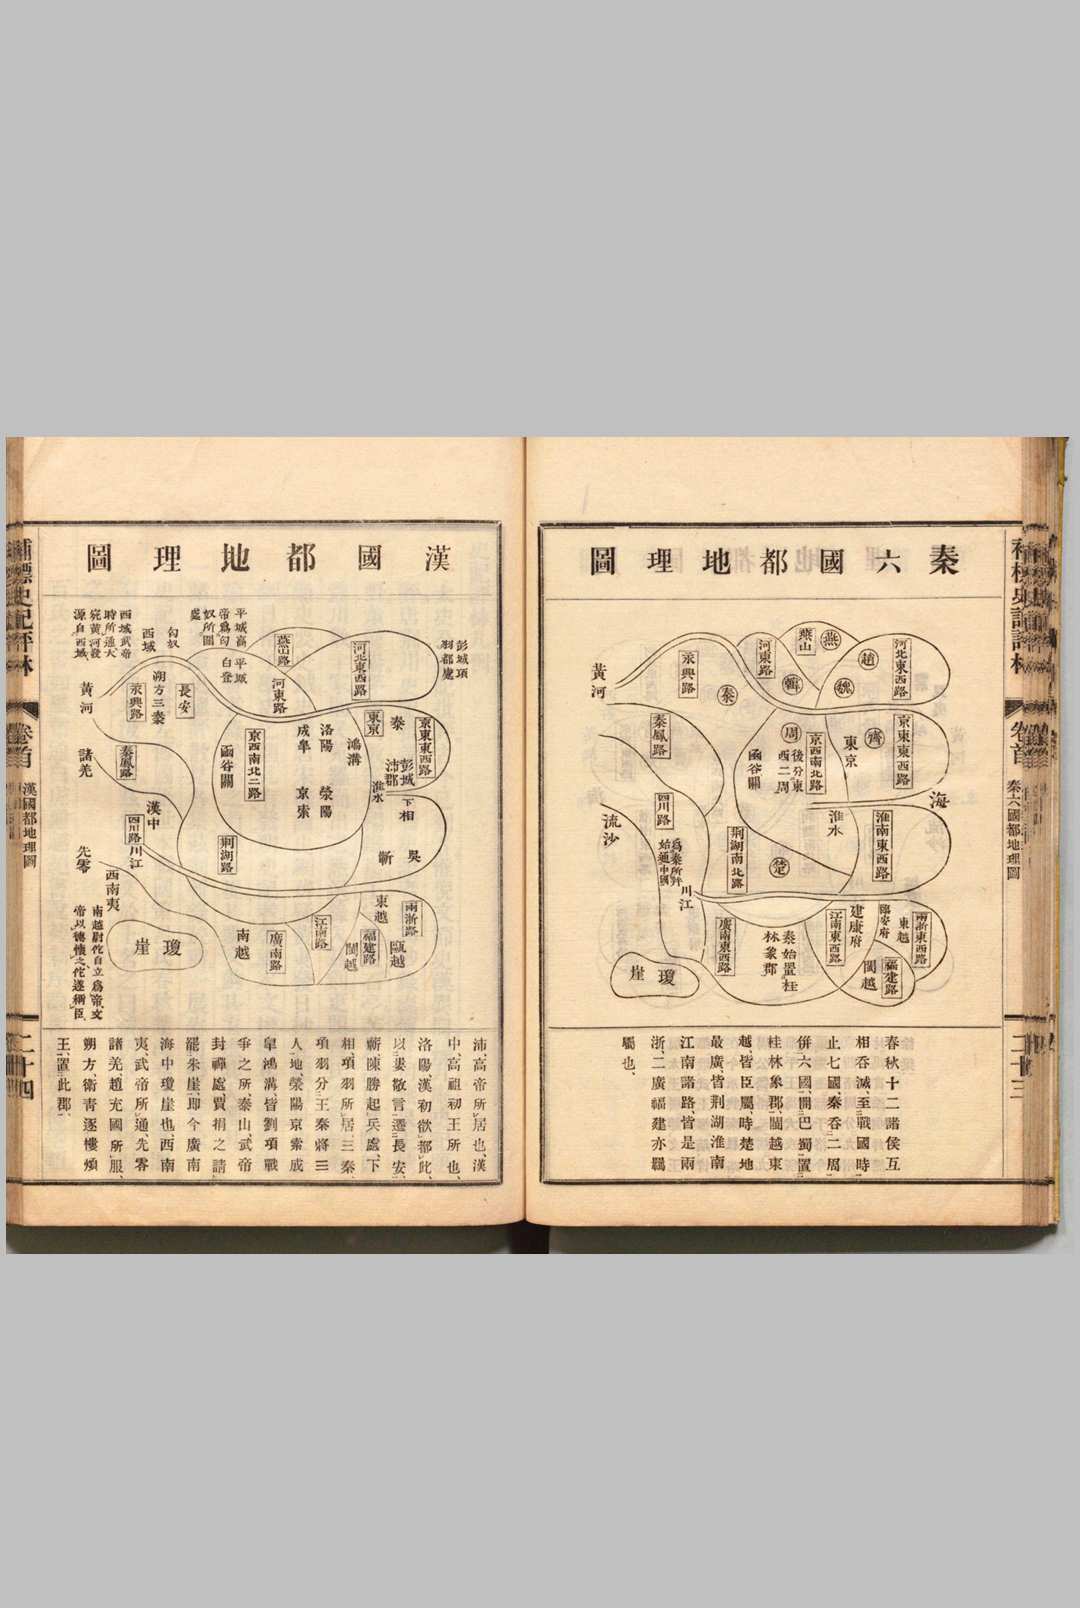 秦六國都地理圖
黃河
永興路
河東路
燕山
燕
河北東西路
趙
魏
韓
秦
秦鳳路
周
後分東
西二周
京西南北路
函谷關
東京
齊
京東東西路
海
流沙
四川路
爲秦所幷
始通中國
川江
荆湖南北路
淮水
楚
淮南東西路
瓊崖
廣南東西路
秦始置桂
林象郡
江南東西路
建康府
臨安府
東越
兩浙東西路
閩越
福建路
春秋十二諸侯互
相吞滅至戰國時
止七國秦吞二周
併六國開巴蜀置
桂林象郡閩越東
越皆臣屬時楚地
最廣皆荆湖淮南
江南諸路皆是兩
浙二廣福建亦羈
屬也、
卷首
秦六國都地理圖
二十三
漢國都地理圖
彭城項
羽都處
河北東西路
燕山路
河東路
平城高
帝爲匈
奴所圍
處
平城
白登
匈奴
西域
西域武帝
時所通大
宛黃河發
源自西域
黃河
朔方三秦
長安
永興路
諸羌
秦鳳路
函谷關
京西南北二路
洛陽
成皋
滎陽
京索
鴻溝
東京
泰
京東東西路
彭城
沛郡
淮水
下相
蘄
吳
漢中
四川路
川江
荆湖路
先零
西南夷
南越尉佗自立爲帝、文
帝以德懷之佗遂稱臣、
瓊崖
南越
廣南路
江南路
東越
兩浙路
福建路
閩越
甌越
沛、高帝所居也、漢
中、高祖初王所也、
洛陽、漢初欲都此、
以婁敬言遷長安、
蘄陳勝起兵處、下
相、項羽所居、三秦、
項羽分王秦將三
人地、滎陽京索成
皐鴻溝皆劉項戰
爭之所泰山武帝
封禪處、賈捐之請
罷朱崖、即今廣南
海中瓊崖也、西南
夷、武帝所通、先零
諸羌趙充國所服、
朔方、衛青逐樓煩
王置此郡、
補標史記評林
卷首
漢國都地理圖
二十四